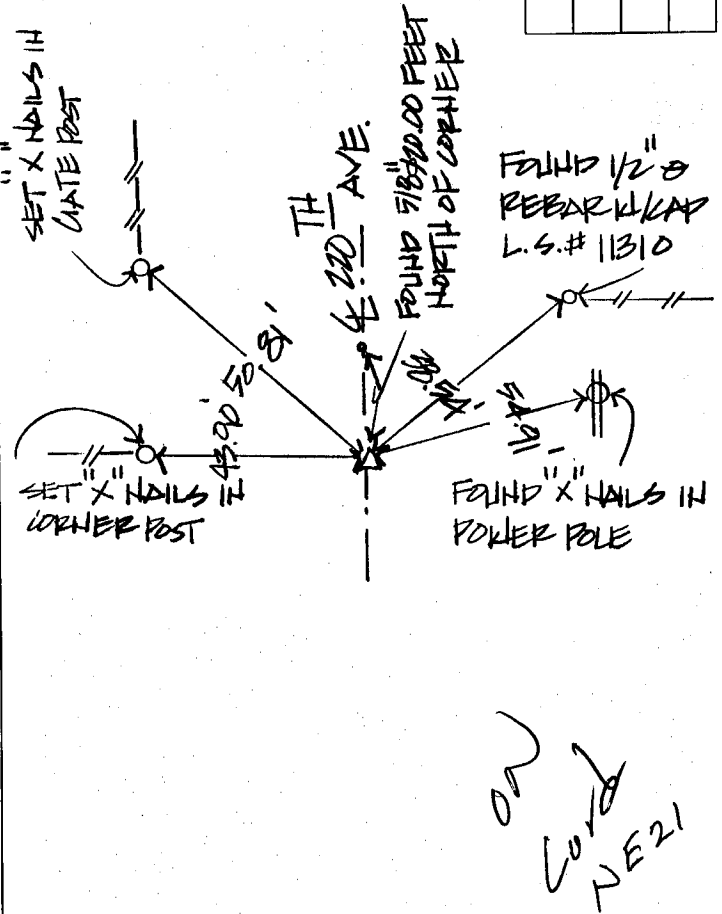 SET "X" NAILS IN
GATE POST
E. 220TH AVE.
FOUND 5/8" 20.00 FEET
NORTH OF CORNER
FOUND 1/2" Ø
REBAR W/CAP
L.S.# 11310
50.81'
43.00'
38.54'
54.91'
SET "X" NAILS IN
CORNER POST
FOUND "X" NAILS IN
POWER POLE
on
Card
NE21